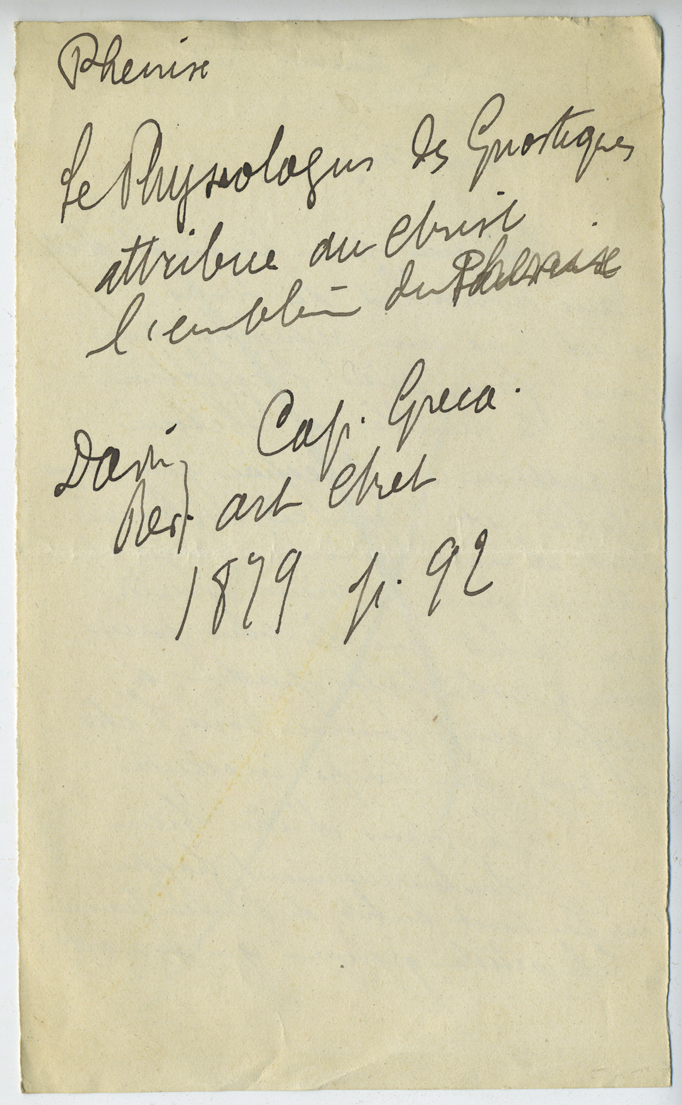 Phenise
Le Physiologus des Gnostiques
attribue au Christ
l'emblême du Phenise
Cap. Greca.
Rev. art Chret
1879 p. 92